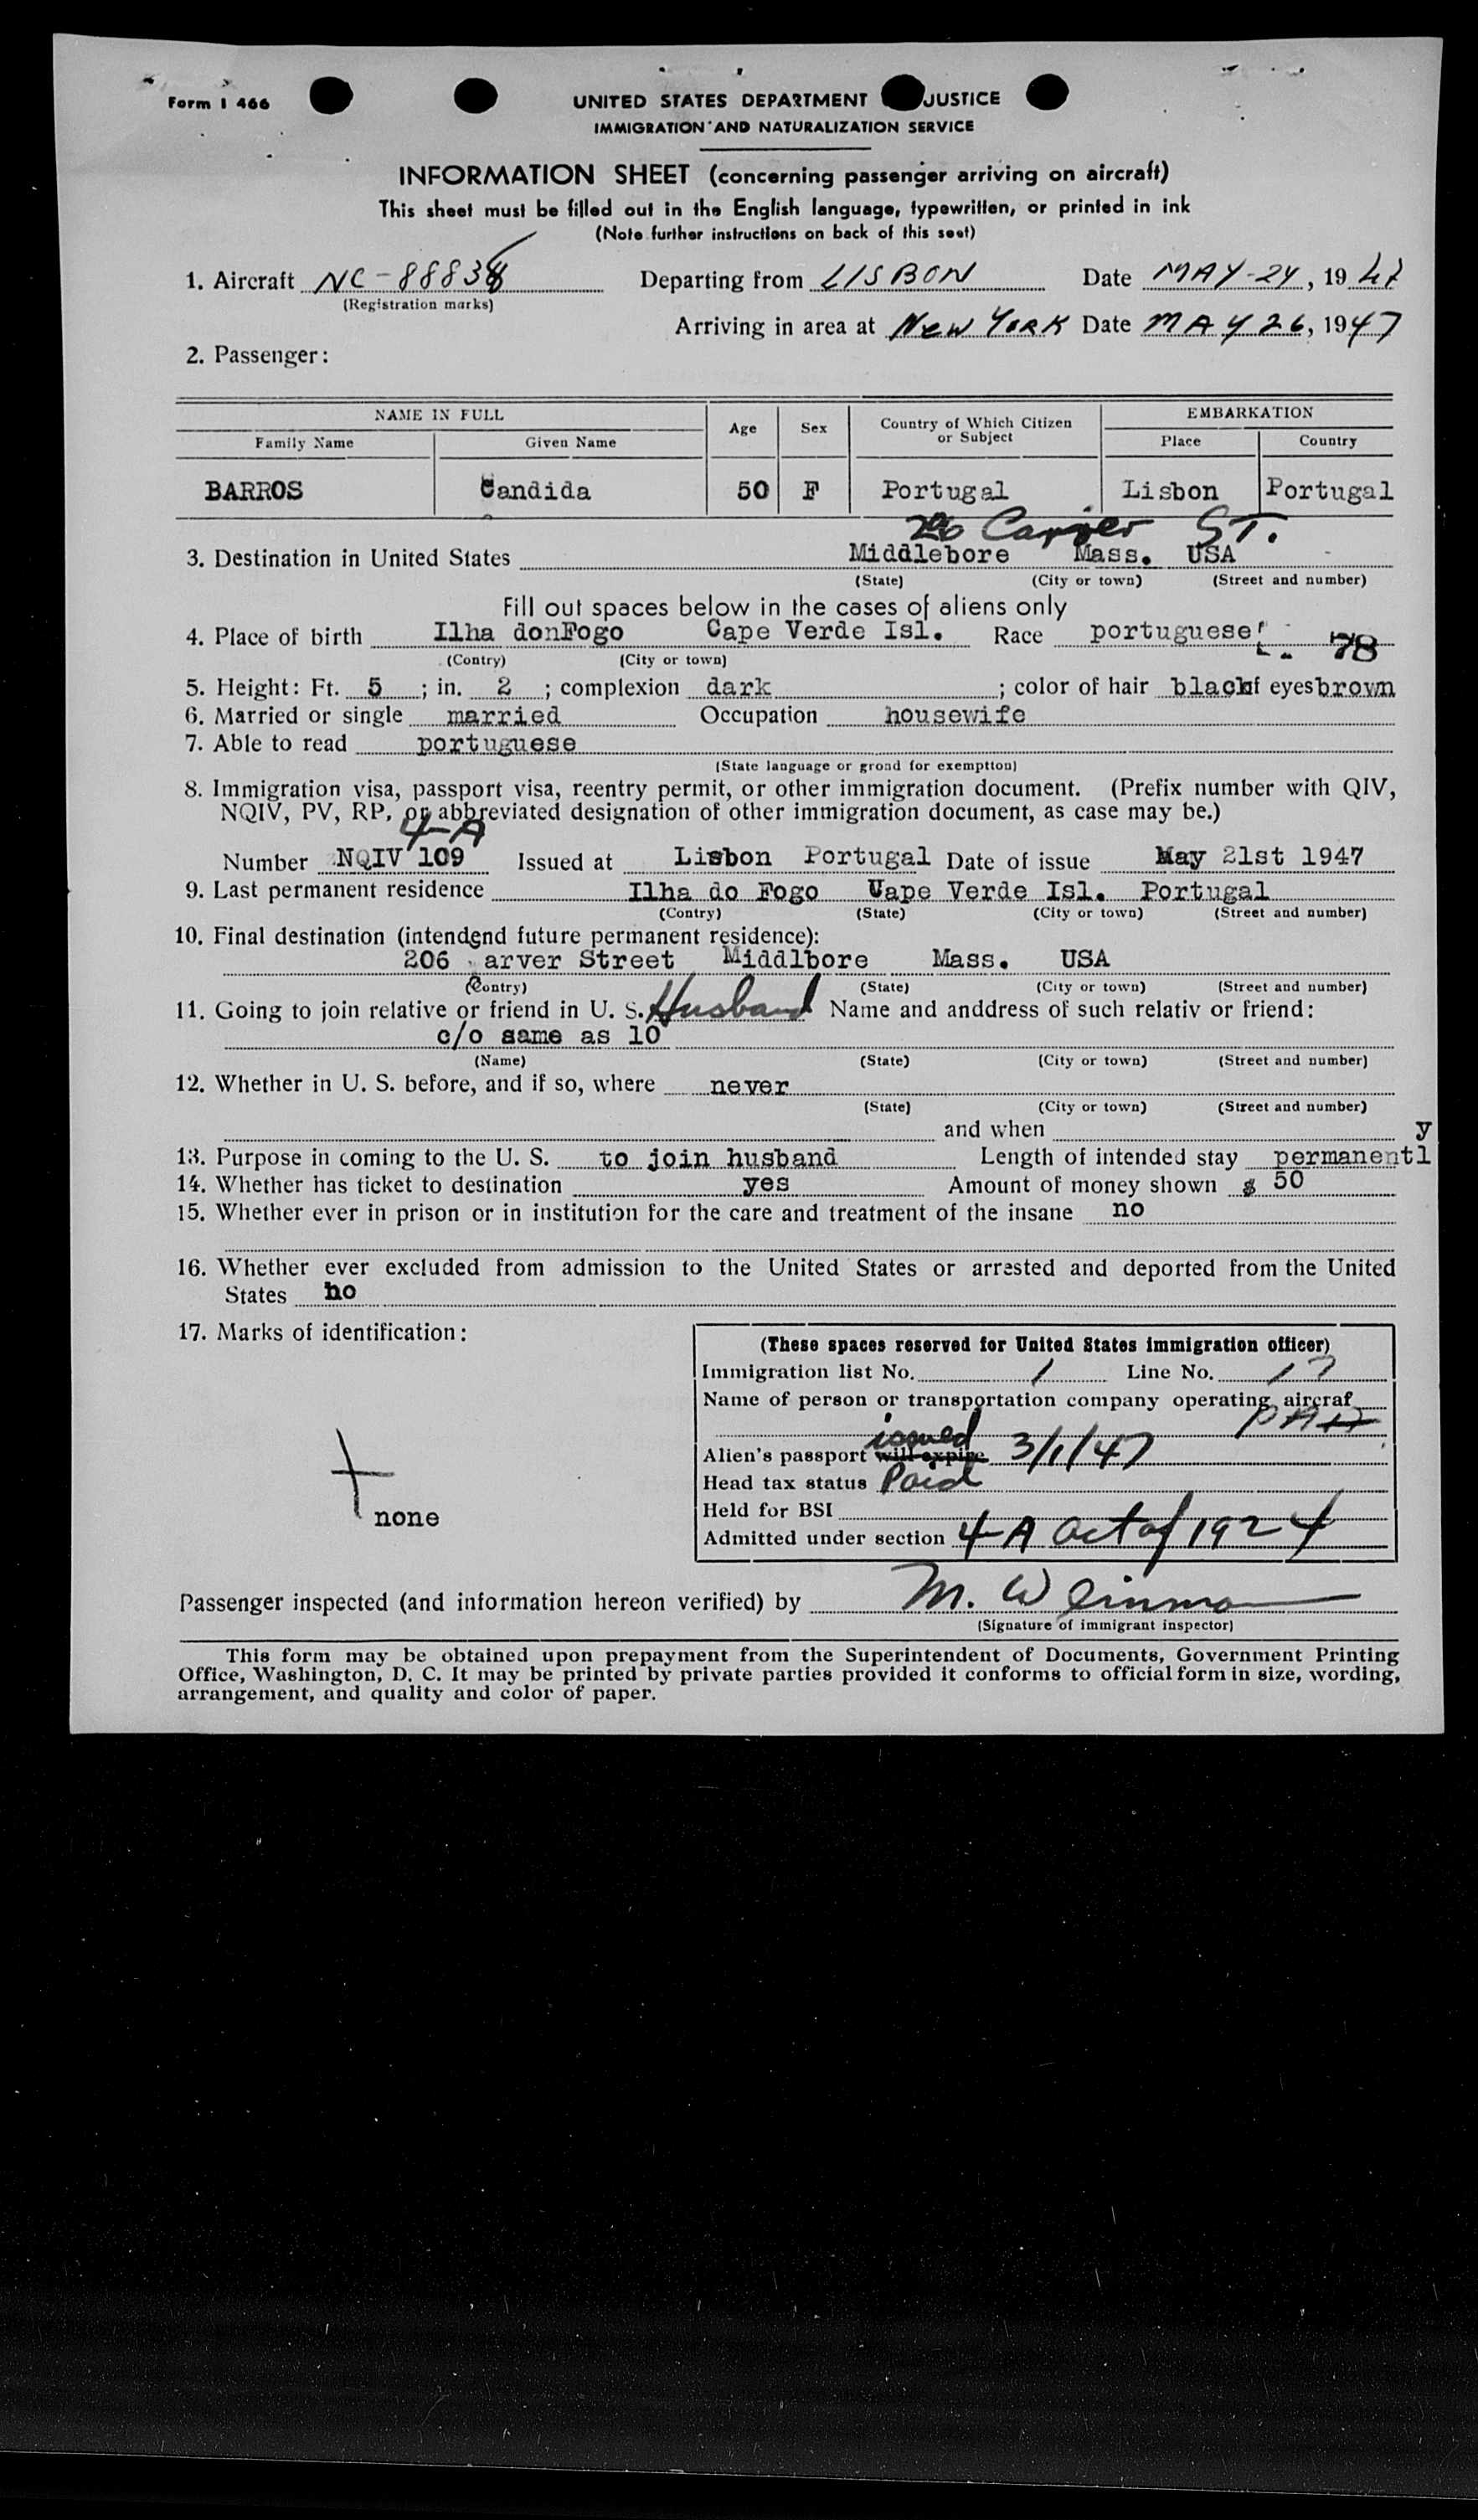 Form I 466
UNITED STATES DEPARTMENT JUSTICE
IMMIGRATION AND NATURALIZATION SERVICE
INFORMATION SHEET (concerning passenger arriving on aircraft)
This sheet must be filled out in the English language, typewritten, or printed in ink
(Note further instructions on back of this seet)
1. Aircraft NC-88838 Departing from LISBON Date MAY-24, 1947
(Registration marks)
Arriving in area at NEW YORK Date MAY 26, 1947
2. Passenger:
NAME IN FULL Age Sex Country of Which Citizen or Subject EMBARKATION
Family Name Given Name Place Country
BARROS Candida 50 F Portugal Lisbon Portugal
206 Carver ST.
3. Destination in United States Middlebore Mass. USA
(State) (City or town) (Street and number)
Fill out spaces below in the cases of aliens only
4. Place of birth Ilha donFogo Cape Verde Isl. Race portuguese 78
(Contry) (City or town)
5. Height: Ft. 5 ; in. 2 ; complexion dark ; color of hair black eyes brown
6. Married or single married Occupation housewife
7. Able to read portuguese
(State language or grond for exemption)
8. Immigration visa, passport visa, reentry permit, or other immigration document. (Prefix number with QIV,
NQIV, PV, RP, or abbreviated designation of other immigration document, as case may be.)
4-A
Number NQIV 109 Issued at Lisbon Portugal Date of issue May 21st 1947
9. Last permanent residence Ilha do Fogo Cape Verde Isl. Portugal
(Contry) (State) (City or town) (Street and number)
10. Final destination (intendend future permanent residence):
206 arver Street Middlbore Mass. USA
(Contry) (State) (City or town) (Street and number)
11. Going to join relative or friend in U. S. Husband Name and anddress of such relativ or friend:
c/o same as 10
(Name) (State) (City or town) (Street and number)
12. Whether in U. S. before, and if so, where never
(State) (City or town) (Street and number)
and when
13. Purpose in coming to the U. S. to join husband Length of intended stay permanently
14. Whether has ticket to destination yes Amount of money shown $ 50
15. Whether ever in prison or in institution for the care and treatment of the insane no
16. Whether ever excluded from admission to the United States or arrested and deported from the United
States no
17. Marks of identification:
none
(These spaces reserved for United States immigration officer)
Immigration list No. 1 Line No. 17
Name of person or transportation company operating aircraf
PAA
issued
Alien's passport will expire 3/1/47
Head tax status Paid
Held for BSI
Admitted under section 4-A act of 1924
Passenger inspected (and information hereon verified) by M. Weinman
(Signature of immigrant inspector)
This form may be obtained upon prepayment from the Superintendent of Documents, Government Printing
Office, Washington, D. C. It may be printed by private parties provided it conforms to official form in size, wording,
arrangement, and quality and color of paper.